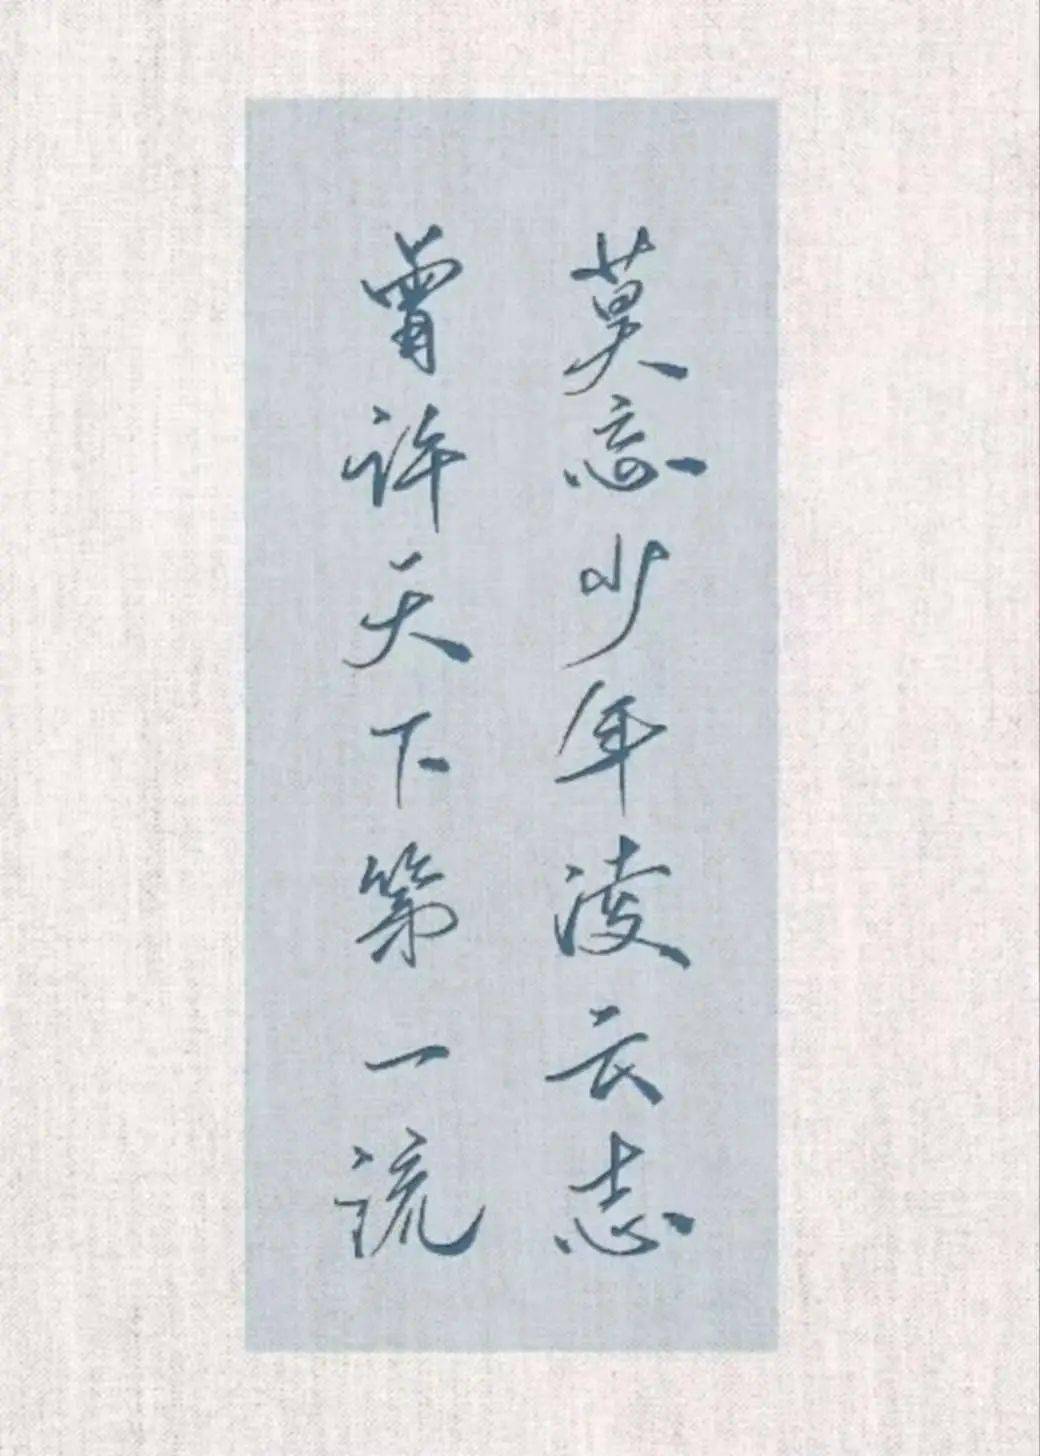 莫忘少年凌云志
曾许天下第一流